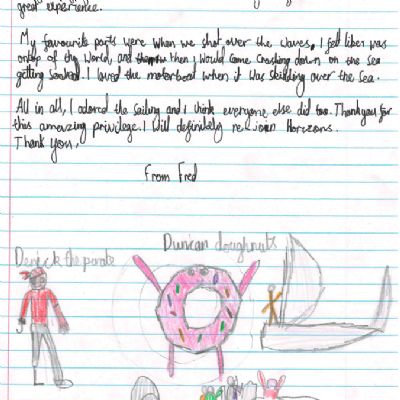 great experience.
My favourite parts were when we shot over the waves. I felt like I was
ontop of the world, and then I would come crashing down on the sea
getting soaked. I loved the motorboat when it was skidding over the sea.
All in all, I adored the sailing and i think everyone else did too. Thankyou for
this amazing privilege. I will definitely re-join Horizons.
Thank you,
From Fred
Duncan doughnuts
Dereck the pirate